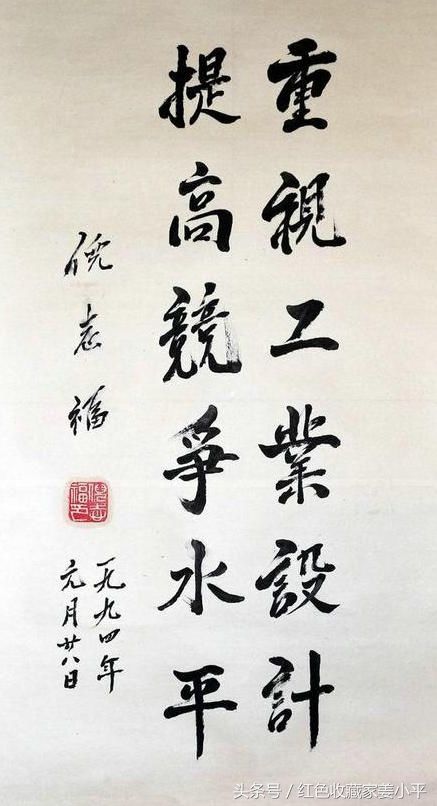 重視工業設計
提高競爭水平
倪志福
倪志
福印
一九九四年
元月廿八日
头条号／红色收藏家姜小平